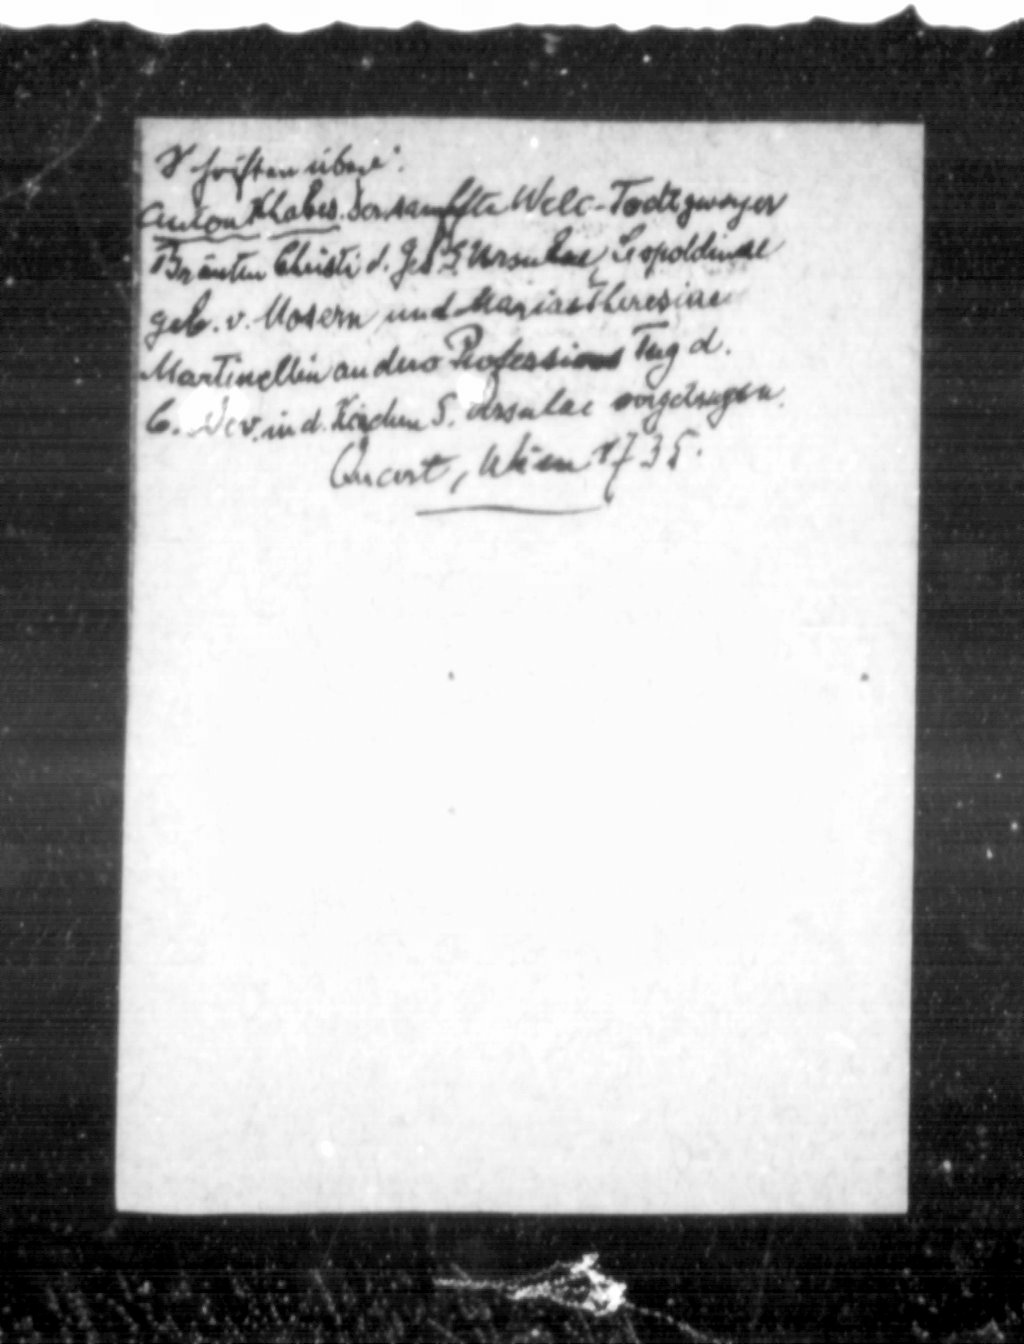 Schriften über:
Anton Klabes. Der sanffte Welt-Todt zweyer
Bräuten Christi d. Ges. S. Ursulae, Leopoldinae
geb. v. Mosern und Mariae Theresiae
Martinellin an dero Professions Tag d.
6. in d. Kirchen S. Ursulae vorgetragen.
Quart, Wien 1735.